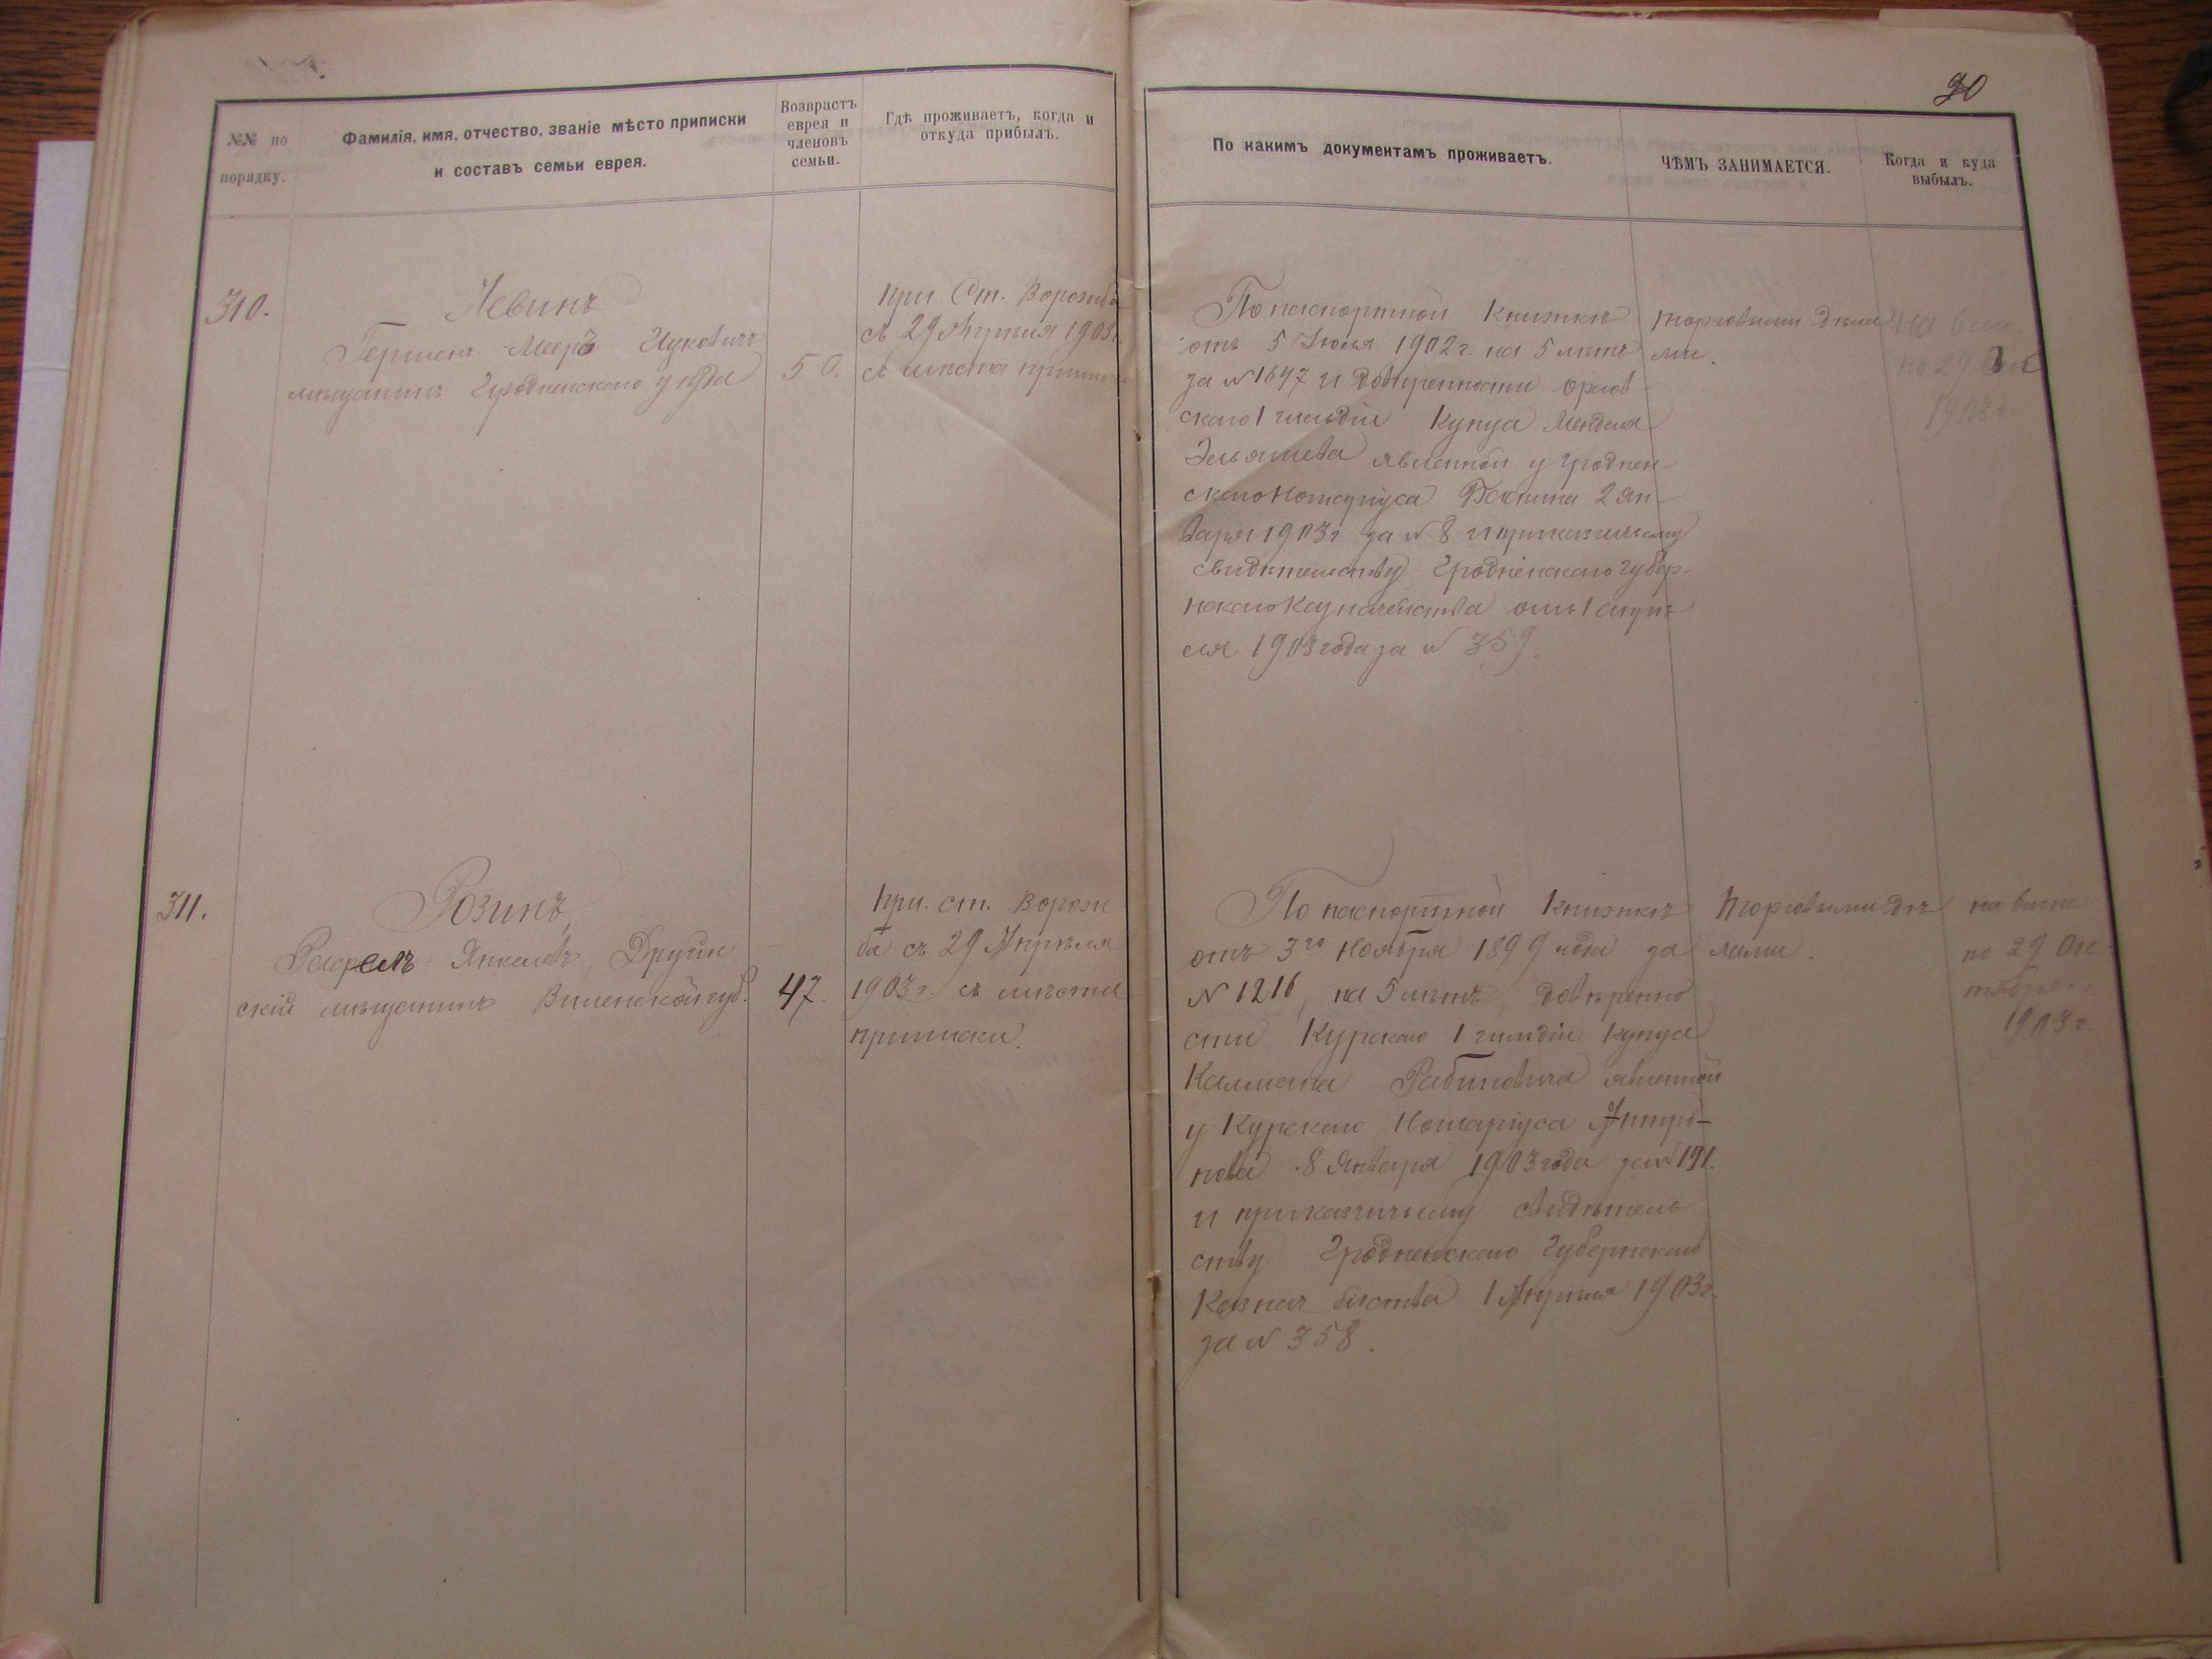 90
№№ по
порядку.
Фамилія, имя, отчество, званіе мѣсто приписки
и составъ семьи еврея.
Возврастъ
еврея и
членовъ
семьи.
Гдѣ проживаетъ, когда и
откуда прибылъ.
По какимъ документамъ проживаетъ.
ЧѢМЪ ЗАНИМАЕТСЯ.
Когда и куда
выбылъ.
310.
Левинъ
Мееръ Ицковичъ
мѣщанинъ Гродненскаго уѣзда
50.
При Ст. Ворожба
съ 29 Апрѣля 1903 г.
съ мѣста приписки
По паспортной Книжкѣ
отъ 5 Іюля 1902 г. на 5 лѣтъ
за № 1647 и довѣренности орлов
скаго 1 гильдіи Купца Менделя
Эльяшева явленной у Гроднен
скаго Нотаріуса 2 Ян-
варя 1903 г за № 8 и приказчичьему
свидѣтельству Гродненскаго Губер-
нскаго Казначейства отъ 1 апрѣ
ля 1903 года за № 359.
торговыми дѣла
ми.
на
по 29 Ок
1903 г
311.
Розинъ,
Янкелевъ, Друйн
скій мѣщанинъ Виленской губ.
47.
При. ст. Ворож
ба съ 29 Апрѣля
1903 г. съ мѣста
приписки.
По паспортной Книжкѣ
отъ 3го Ноября 1899 года за
№ 1216, на 5 лѣтъ, довѣренно
сти Курскаго 1 гильдіи купца
Калмана Рабиновича явленной
у Курскаго Нотаріуса Антро-
пова 8 Января 1903 года за № 191.
и приказчичьему свидѣтель
ству Гродненскаго Губернскаго
Казнач ейства 1 Апрѣля 1903 г.
за № 358.
Торговыми дѣ
лами.
на
по 29 Ок
тября
1903 г